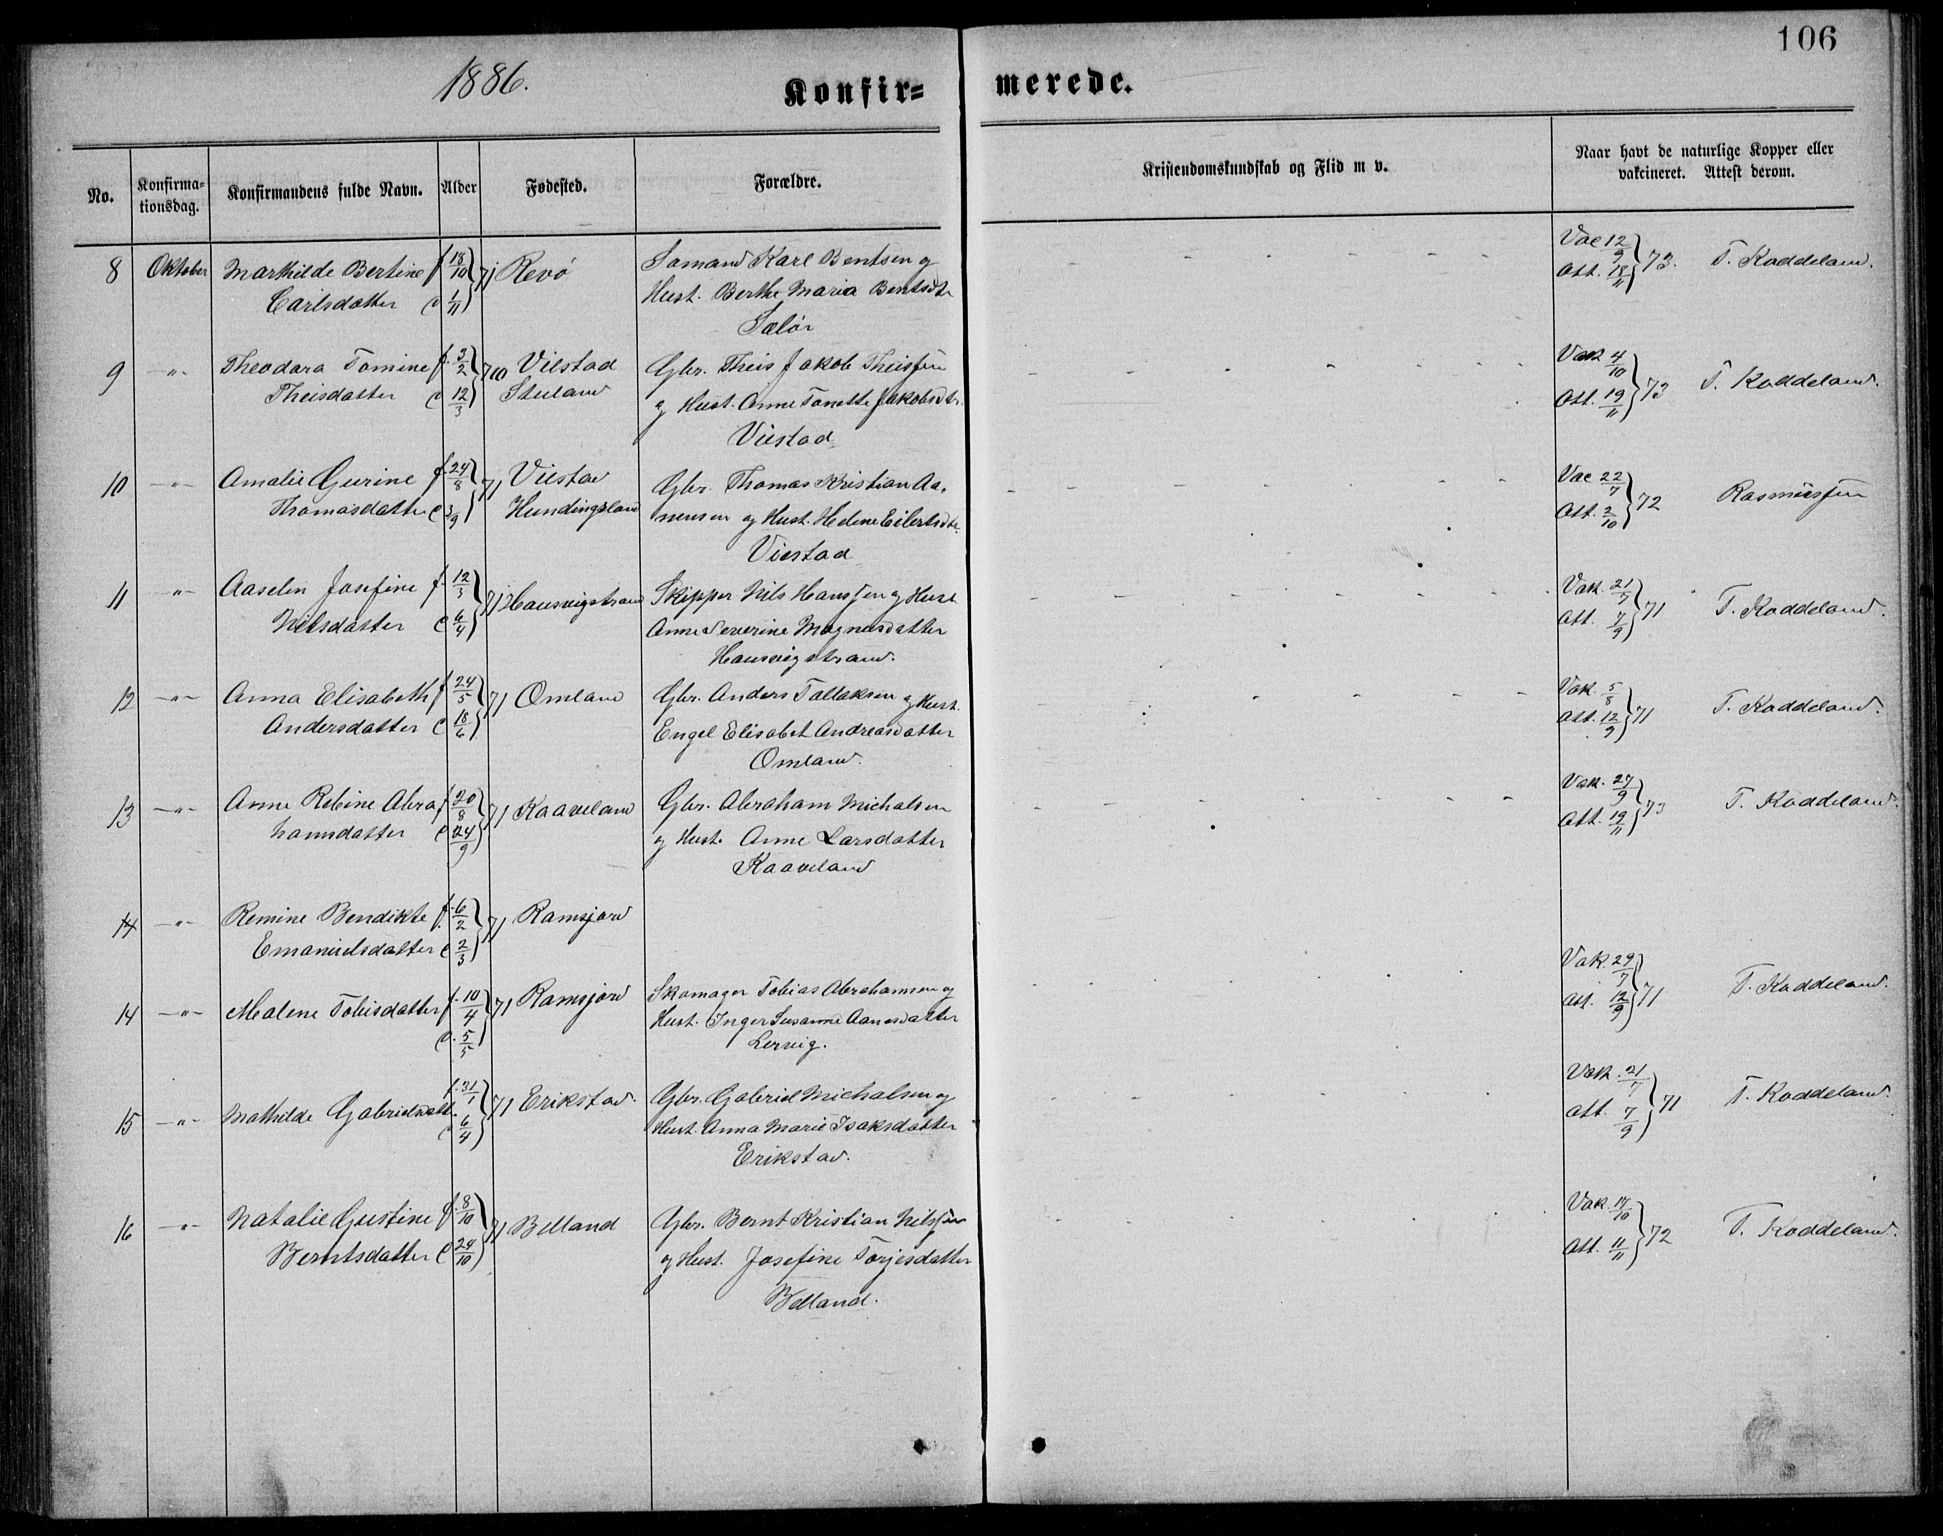 106
1886.
Konfir= merede.
No.
Konfirma-
tionsdag.
Konfirmandens fulde Navn.
Alder
Fødested.
Forældre.
Kristendomskundskab og Flid m v.
Naar havt de naturlige Kopper eller
vakcineret. Attest derom.
8 Oktober Mathilde Bertine f 18/10 71 Revø Sømand Karl Bentsen og Vac 12/9 73. T. Koddeland.
Carlsdatter d 1/11 Hust. Berthe Maria Bentsdtr Att. 18/11
Sælør
9 -"- Theodora Tomine f. 3/2 Viestad Gbr. Theis Jakob Theissen Vak 4/10 73 T. Koddeland.
Theisdatter d 12/3 og Hust. Anne Tonette Jakobsdtr. Att. 19/11
Viestad
10 -"- Amalie Gurine f. 24/8 71 Viestad Gbr. Thomas Kristian Aa- Vac 22/7 72 Rasmussen
Thomasdatter d 3/9 Hundingsland nensen og Hust. Helene Eilertsdtr. Att. 2/10
Viestad
11 -"- Aaselin Josefine f. 12/3 71 Hausvigstrand Skipper Nils Hanssen og Hust Vak. 21/7 71 T. Koddeland.
Nilsdatter d 6/4 Anne Severine Magnusdatter Att. 7/9
Hausvigstrand.
12 -"- Anna Elisabeth f 24/5 71 Omland Gbr. Anders Tollaksen og Hust. Vak. 5/8 71 T. Koddeland.
Andersdatter d 18/6 Engel Elisabet Andreasdatter Att. 12/9
Omland.
13 -"- Anne Rebine Abra f 20/8 71 Kaaveland Gbr. Abraham Michalsen Vak. 27/9 73 T. Koddeland.
hamsdatter d 24/9 og Hust. Anne Larsdatter Att. 19/11
Kaaveland
14 -"- Remine Bendikte f. 6/2 71 Ramsjord
Emanuelsdatter d 2/3
14 -"- Malene Tobisdatter f. 10/4 71 Ramsjord Skomager Tobias Abrahamsen og Vak. 29/7 71 T. Koddeland.
d. 5/5 Hust. Inger Susanne Aanesdatter Att. 12/9
Lervig.
15 -"- Mathilde Gabrielsdtt. f. 31/1 71 Erikstad. Gbr. Gabriel Michalsen og Vak. 21/7 71 T. Koddeland.
d 6/4 Hust. Anna Marie Isaksdatter Att. 7/9
Erikstad.
16 -"- Natalie Gustine f. 8/10 71 Belland Gbr. Bernt Kristian Nilssen Vak 17/10 72 T. Koddeland.
Berntsdatter d 24/10 og Hust. Josefine Torjesdatter Att. 11/11
Belland.